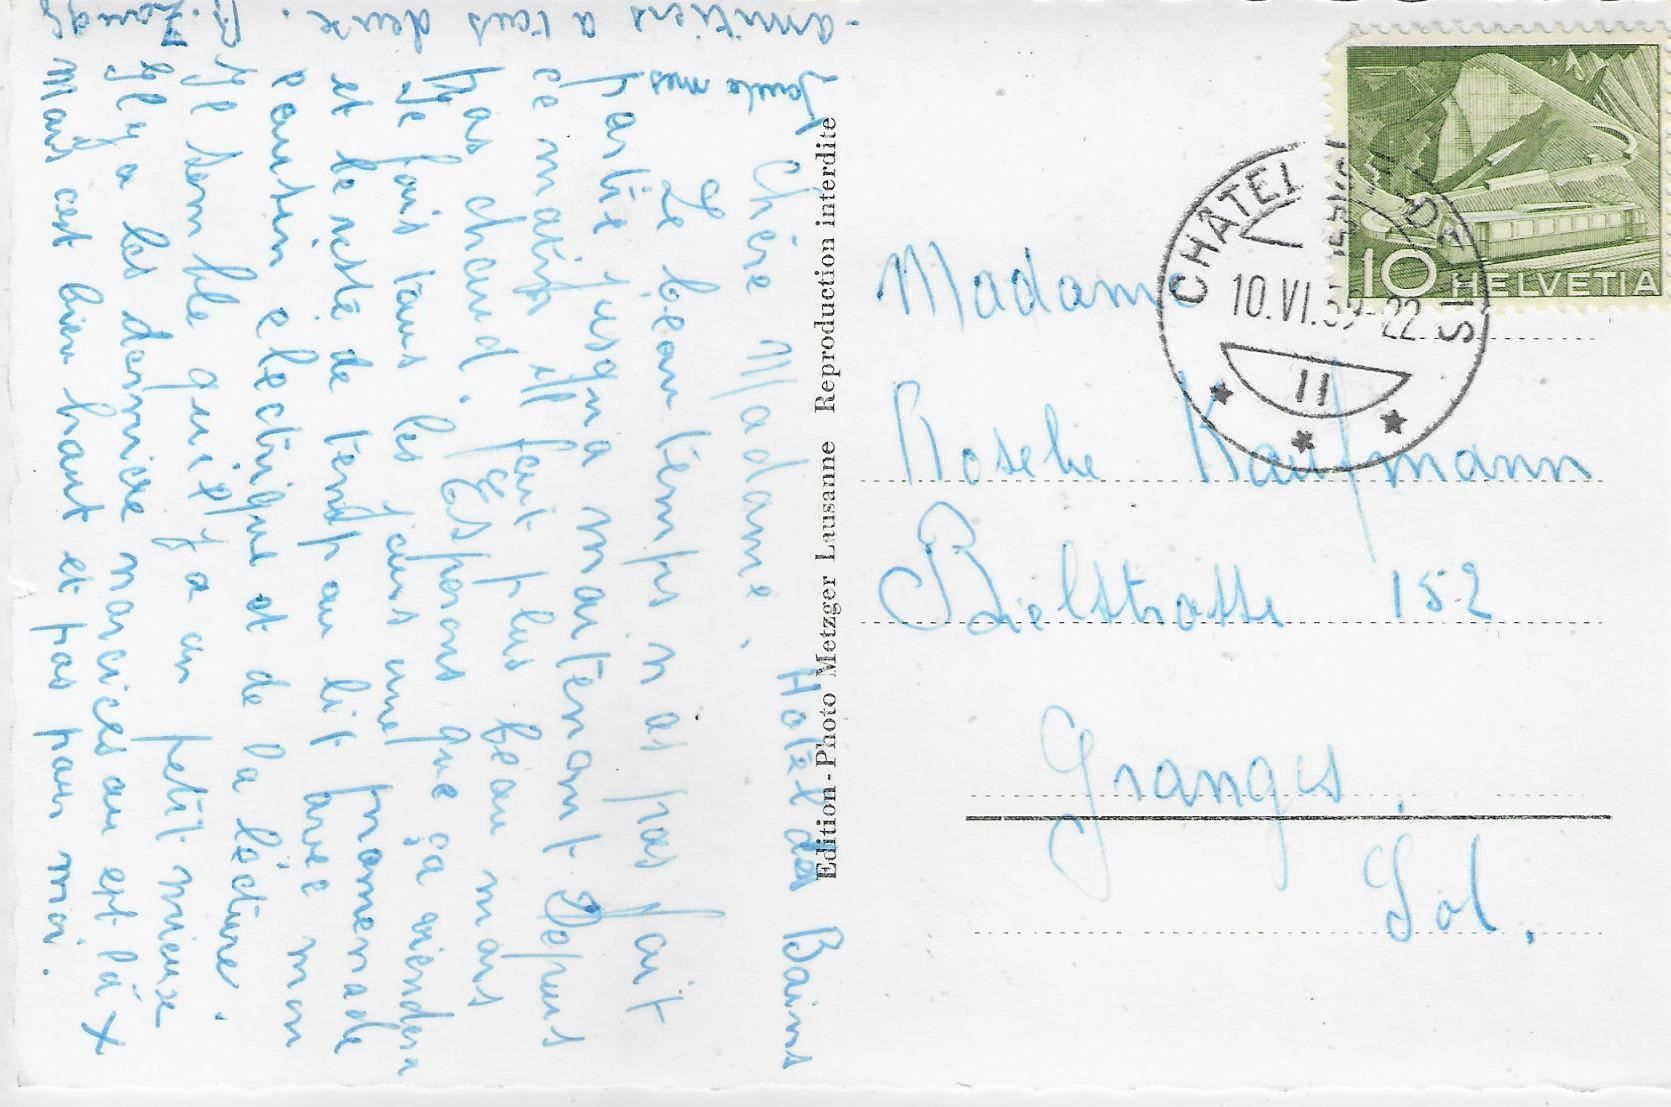 Hotêl des Bains
Chère Madame,
Le beau temps n'as pas fait
partie jusqu'a martenant Depuis
ce matin il fait plus beau mais
pas chaud. Esperons que ça viendera
Je fais tous les jours une promenade
et le reste de temp au lit avec mon
coutin electrique et de la lécture.
Il semble qu'il y a un petit mieuse
Il y a les dernière narcices ou est là x
Mais cest bien haut et pas pour moi.
Toute mes
-amitiers a tous deuse.
Edition-Photo Metzger Lausanne Reproduction interdite
10 HELVETIA
CHÂTEL ST DENIS
10.VI.59-22
11
Madame
Roselie Kaufmann
Bielstrasse 152
Granges,
Sol.